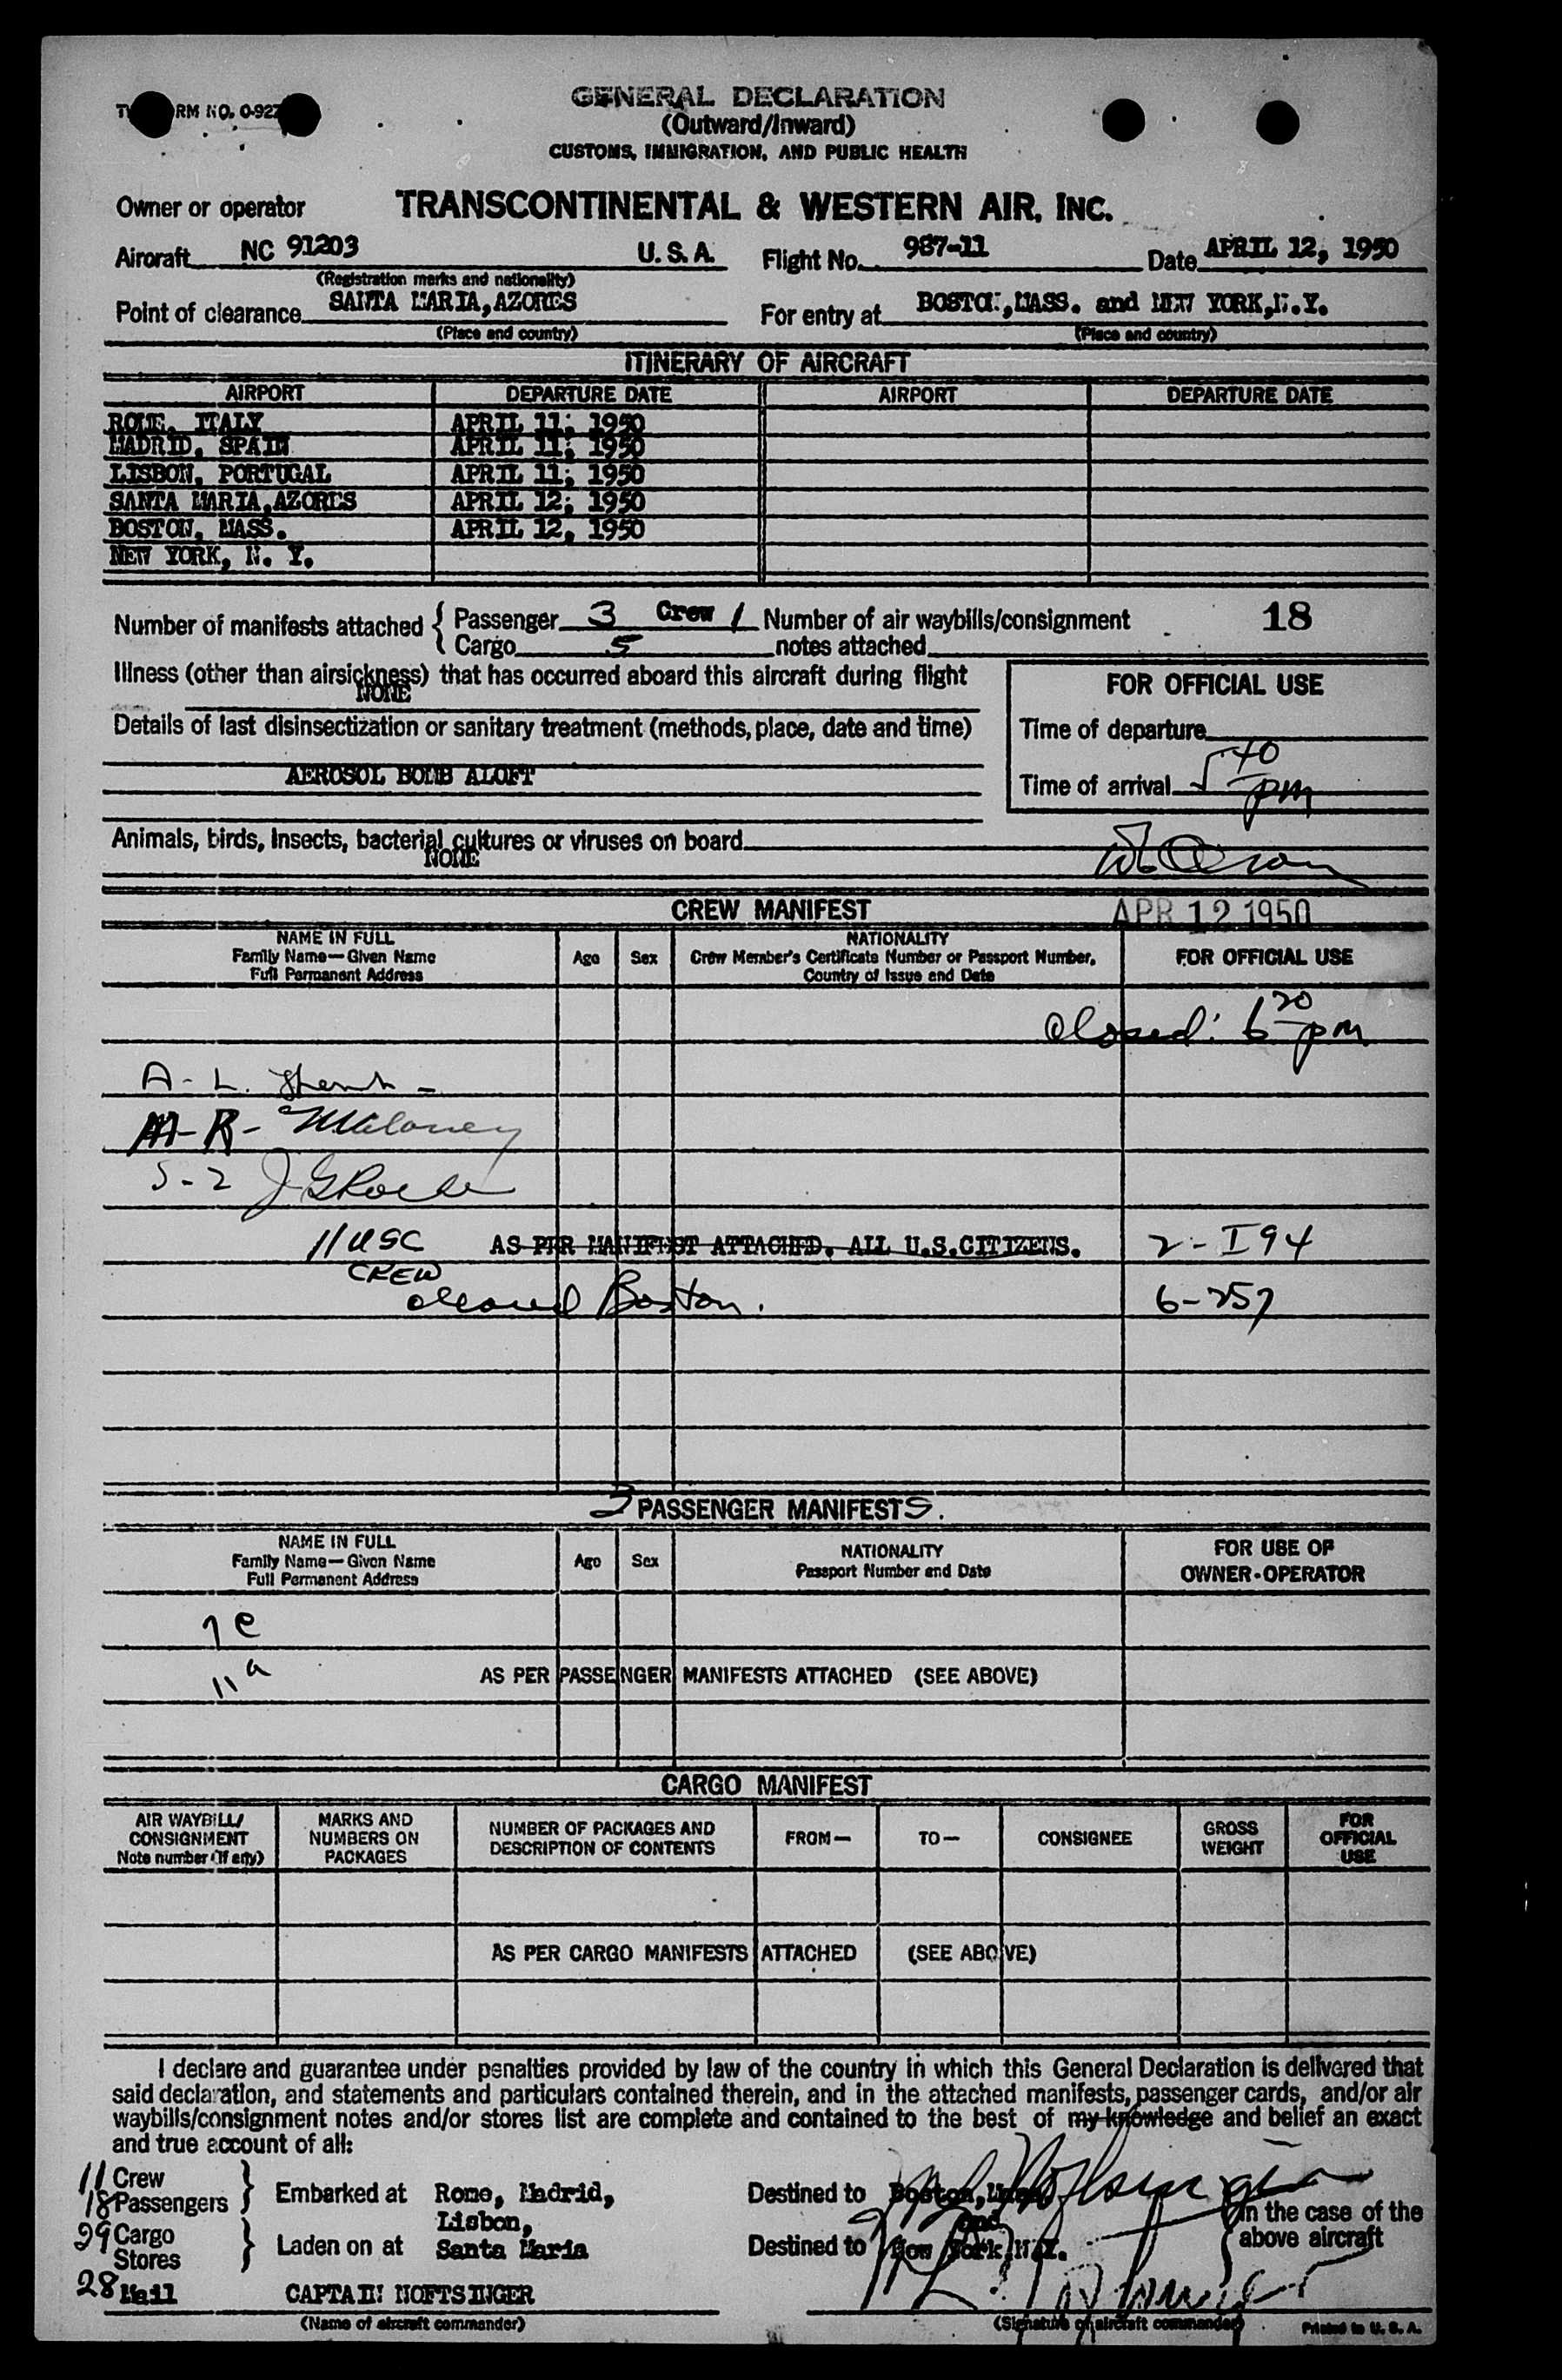 RM NO. 0-927
GENERAL DECLARATION
(Outward/Inward)
CUSTOMS, IMMIGRATION, AND PUBLIC HEALTH
Owner or operator TRANSCONTINENTAL & WESTERN AIR, INC.
Aircraft NC 91203 U. S. A. Flight No. 987-11 Date APRIL 12, 1950
(Registration marks and nationality)
Point of clearance SANTA MARIA, AZORES For entry at BOSTON, MASS. and NEW YORK, N.Y.
(Place and country) (Place and country)
ITINERARY OF AIRCRAFT
AIRPORT DEPARTURE DATE AIRPORT DEPARTURE DATE
ROME, ITALY APRIL 11, 1950
MADRID, SPAIN APRIL 11, 1950
LISBON, PORTUGAL APRIL 11, 1950
SANTA MARIA, AZORES APRIL 12, 1950
BOSTON, MASS. APRIL 12, 1950
NEW YORK, N. Y.
Number of manifests attached { Passenger 3 Crew 1 Number of air waybills/consignment 18
Cargo 5 notes attached
Illness (other than airsickness) that has occurred aboard this aircraft during flight
NONE
FOR OFFICIAL USE
Details of last disinsectization or sanitary treatment (methods, place, date and time)
Time of departure
AEROSOL BOMB ALOFT
Time of arrival 5 40 pm
Animals, birds, insects, bacterial cultures or viruses on board
NONE
CREW MANIFEST APR 12 1950
NAME IN FULL
Family Name—Given Name
Full Permanent Address
Age Sex
NATIONALITY
Crew Member's Certificate Number or Passport Number,
Country of Issue and Date
FOR OFFICIAL USE
Closed: 6 20 pm
A - L.
M-R- Maloney
S-2 J
11 USC AS PER MANIFEST ATTACHED. ALL U.S.CITIZENS. 2-I94
CREW
cleared Boston. 6-257
3 PASSENGER MANIFESTS.
NAME IN FULL
Family Name—Given Name
Full Permanent Address
Age Sex
NATIONALITY
Passport Number and Date
FOR USE OF
OWNER-OPERATOR
7 c
11 a AS PER PASSENGER MANIFESTS ATTACHED (SEE ABOVE)
CARGO MANIFEST
AIR WAYBILL/
CONSIGNMENT
Note number (if any)
MARKS AND
NUMBERS ON
PACKAGES
NUMBER OF PACKAGES AND
DESCRIPTION OF CONTENTS
FROM— TO— CONSIGNEE
GROSS
WEIGHT
FOR
OFFICIAL
USE
AS PER CARGO MANIFESTS ATTACHED (SEE ABOVE)
I declare and guarantee under penalties provided by law of the country in which this General Declaration is delivered that
said declaration, and statements and particulars contained therein, and in the attached manifests, passenger cards, and/or air
waybills/consignment notes and/or stores list are complete and contained to the best of my knowledge and belief an exact
and true account of all:
11 Crew
18 Passengers } Embarked at Rome, Madrid, Destined to Boston, Mass.
Lisbon, and
In the case of the
above aircraft
29 Cargo
Stores } Laden on at Santa Maria Destined to New York, N.Y.
28 Mail CAPTAIN NOFTSINGER
(Name of aircraft commander) (Signature of aircraft commander) Printed in U. S. A.